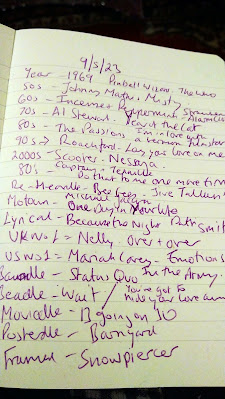 9/5/23
Year - 1969 Pinball Wizard. The Who
50s - Johnny Mathis. Misty
60s - Incense + Peppermints - Strawberry Alarm Clock
70s - Al Stewart. Year of the Cat
80s - The Passions. I'm in love with a German filmstar
90s → Roachford - Lay your love on me
2000s - Scooter. Nessaja
80s - Captain + Tennille Do that to me one more time
Re-Heardle - Bee Gees - Jive Talkin'
Motown - Michael Jackson One Day In Your Life
Lyrical - Because the Night Patti Smith
UK No 1 - Nelly. Over + over
US No 1 = Mariah Carey - Emotions
- Status Quo In the Army.
Beadle - Wait / You've got to hide your love away
Moviedle - going on 30
Posterdle - Barnyard
Framed - Snowpiercer